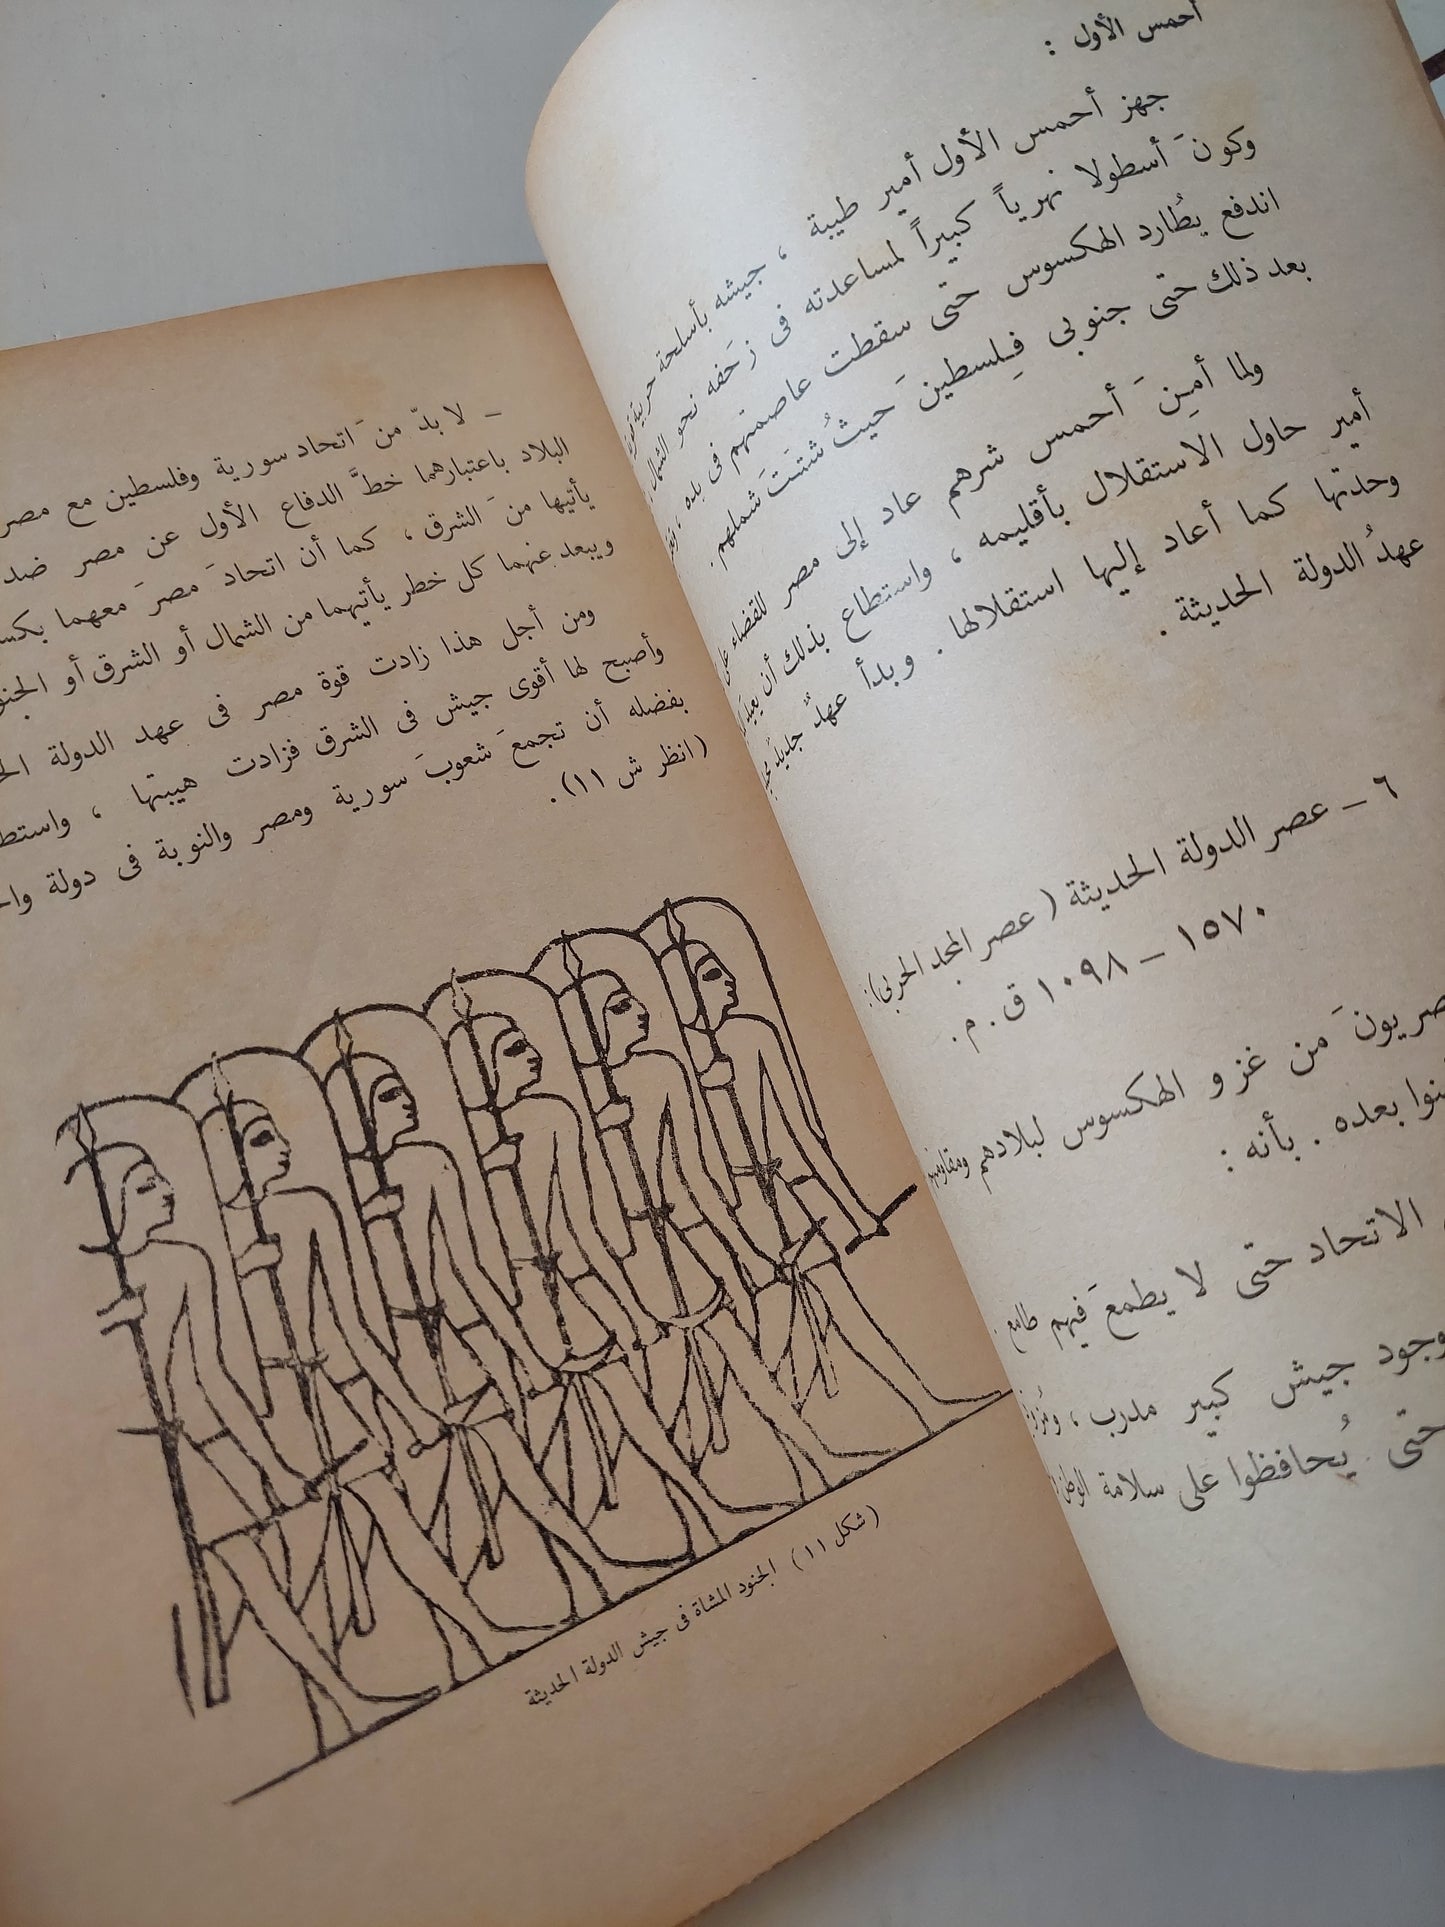 أحمس الأول :
جهز أحمس الأول أمير طيبة ، جيشه بأسلحة حربية
وكونَ أسطولا نهرياً كبيراً لمساعدته فى زَحفه نحو الشمال
اندفع يُطارد الهكسوس حتى سقطت عاصمتهم فى يده ،
بعد ذلك حتى جنوبى فِلسطينَ حيثُ شتتَ شملهم .
ولما أمِنَ أحمس شرهم عاد إلى مصر للقضاء على
أمير حاول الاستقلال بأقليمه ، واستطاع بذلك أن يعيد
وحدتها كما أعاد إليها استقلالها . وبدأ عهدٌ جديدٌ
عهدُ الدولة الحديثة .
٦ – عصر الدولة الحديثة ( عصر المجد الحربى ) :
١٥٧٠ – ١٠٩٨ ق . م .
من غزو الهكسوس لبلادهم
بعده . بأنه :
الاتحاد حتى لا يطمعَ فيهم طامع .
جيش كبير مدرب ،
حتى يُحافظوا على سلامة
– لا بدّ منَ اتحاد سورية وفلسطين مع مصر
البلاد باعتبارهما خطَّ الدفاع الأول عن مصر ضد
يأتيها منَ الشرق ، كما أن اتحادَ مصرَ معهما
ويبعد عنهما كل خطر يأتيهما من الشمال أو الشرق أو
ومن أجل هذا زادت قوة مصر فى عهد الدولة
وأصبح لها أقوى جيش فى الشرق فزادت هيبتها ،
بفضله أن تجمعَ شعوبَ سورية ومصر والنوبة فى دولة
( انظر ش ١١ ) .
( شكل ١١ ) الجنود المشاة فى جيش الدولة الحديثة